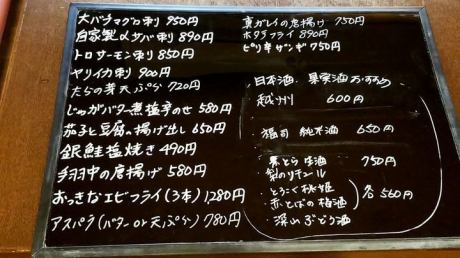 大バラマグロ刺 950円
自家製〆サバ刺 890円
トロサーモン刺 850円
ヤリイカ刺 900円
たらの芽天ぷら 720円
じゃがバター煮塩辛のせ 580円
茄子と豆腐の揚げ出し 650円
銀鮭塩焼き 490円
手羽中の唐揚げ 580円
おっきなエビフライ(3本) 1280円
アスパラ(バターor天ぷら) 780円
真ガレイの唐揚げ 750円
ホタテフライ 890円
ピリ辛ザンギ 750円
日本酒、果実酒おすすめ
越州 600円
福司 純米酒 650円
生酒 750円
梨のリキュール
・とろこく桃姫
・赤とばの梅酒
・深山ぶどう酒
各560円